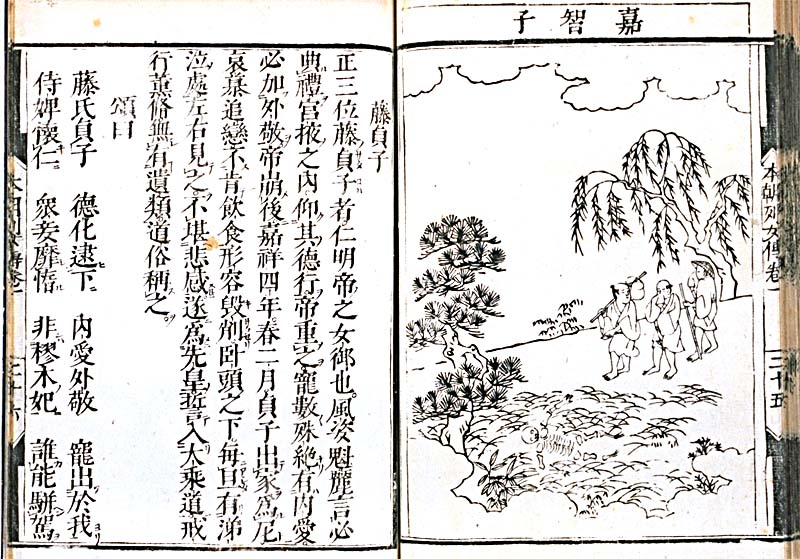 嘉智子
本朝列女傳卷一
三十五
藤貞子
正三位藤貞子者仁明帝之女御也風姿魁麗言必
典禮宮掖之內仰其德行帝重之寵數殊絕有內愛
必加外敬帝崩後嘉祥四年春二月貞子出家爲尼
哀慕追戀不肯飲食形容毀削臥頭之下每旦有涕
泣處左右見之不堪悲感遂爲先皇誓入大乘道戒
行薰修無有遺類道俗稱之
頌曰
藤氏貞子 德化逮下 內愛外敬 寵出於我
侍婢懷仁 衆妾靡悟 非樛木妃 誰能駢駕
本朝列女傳卷一
三十六